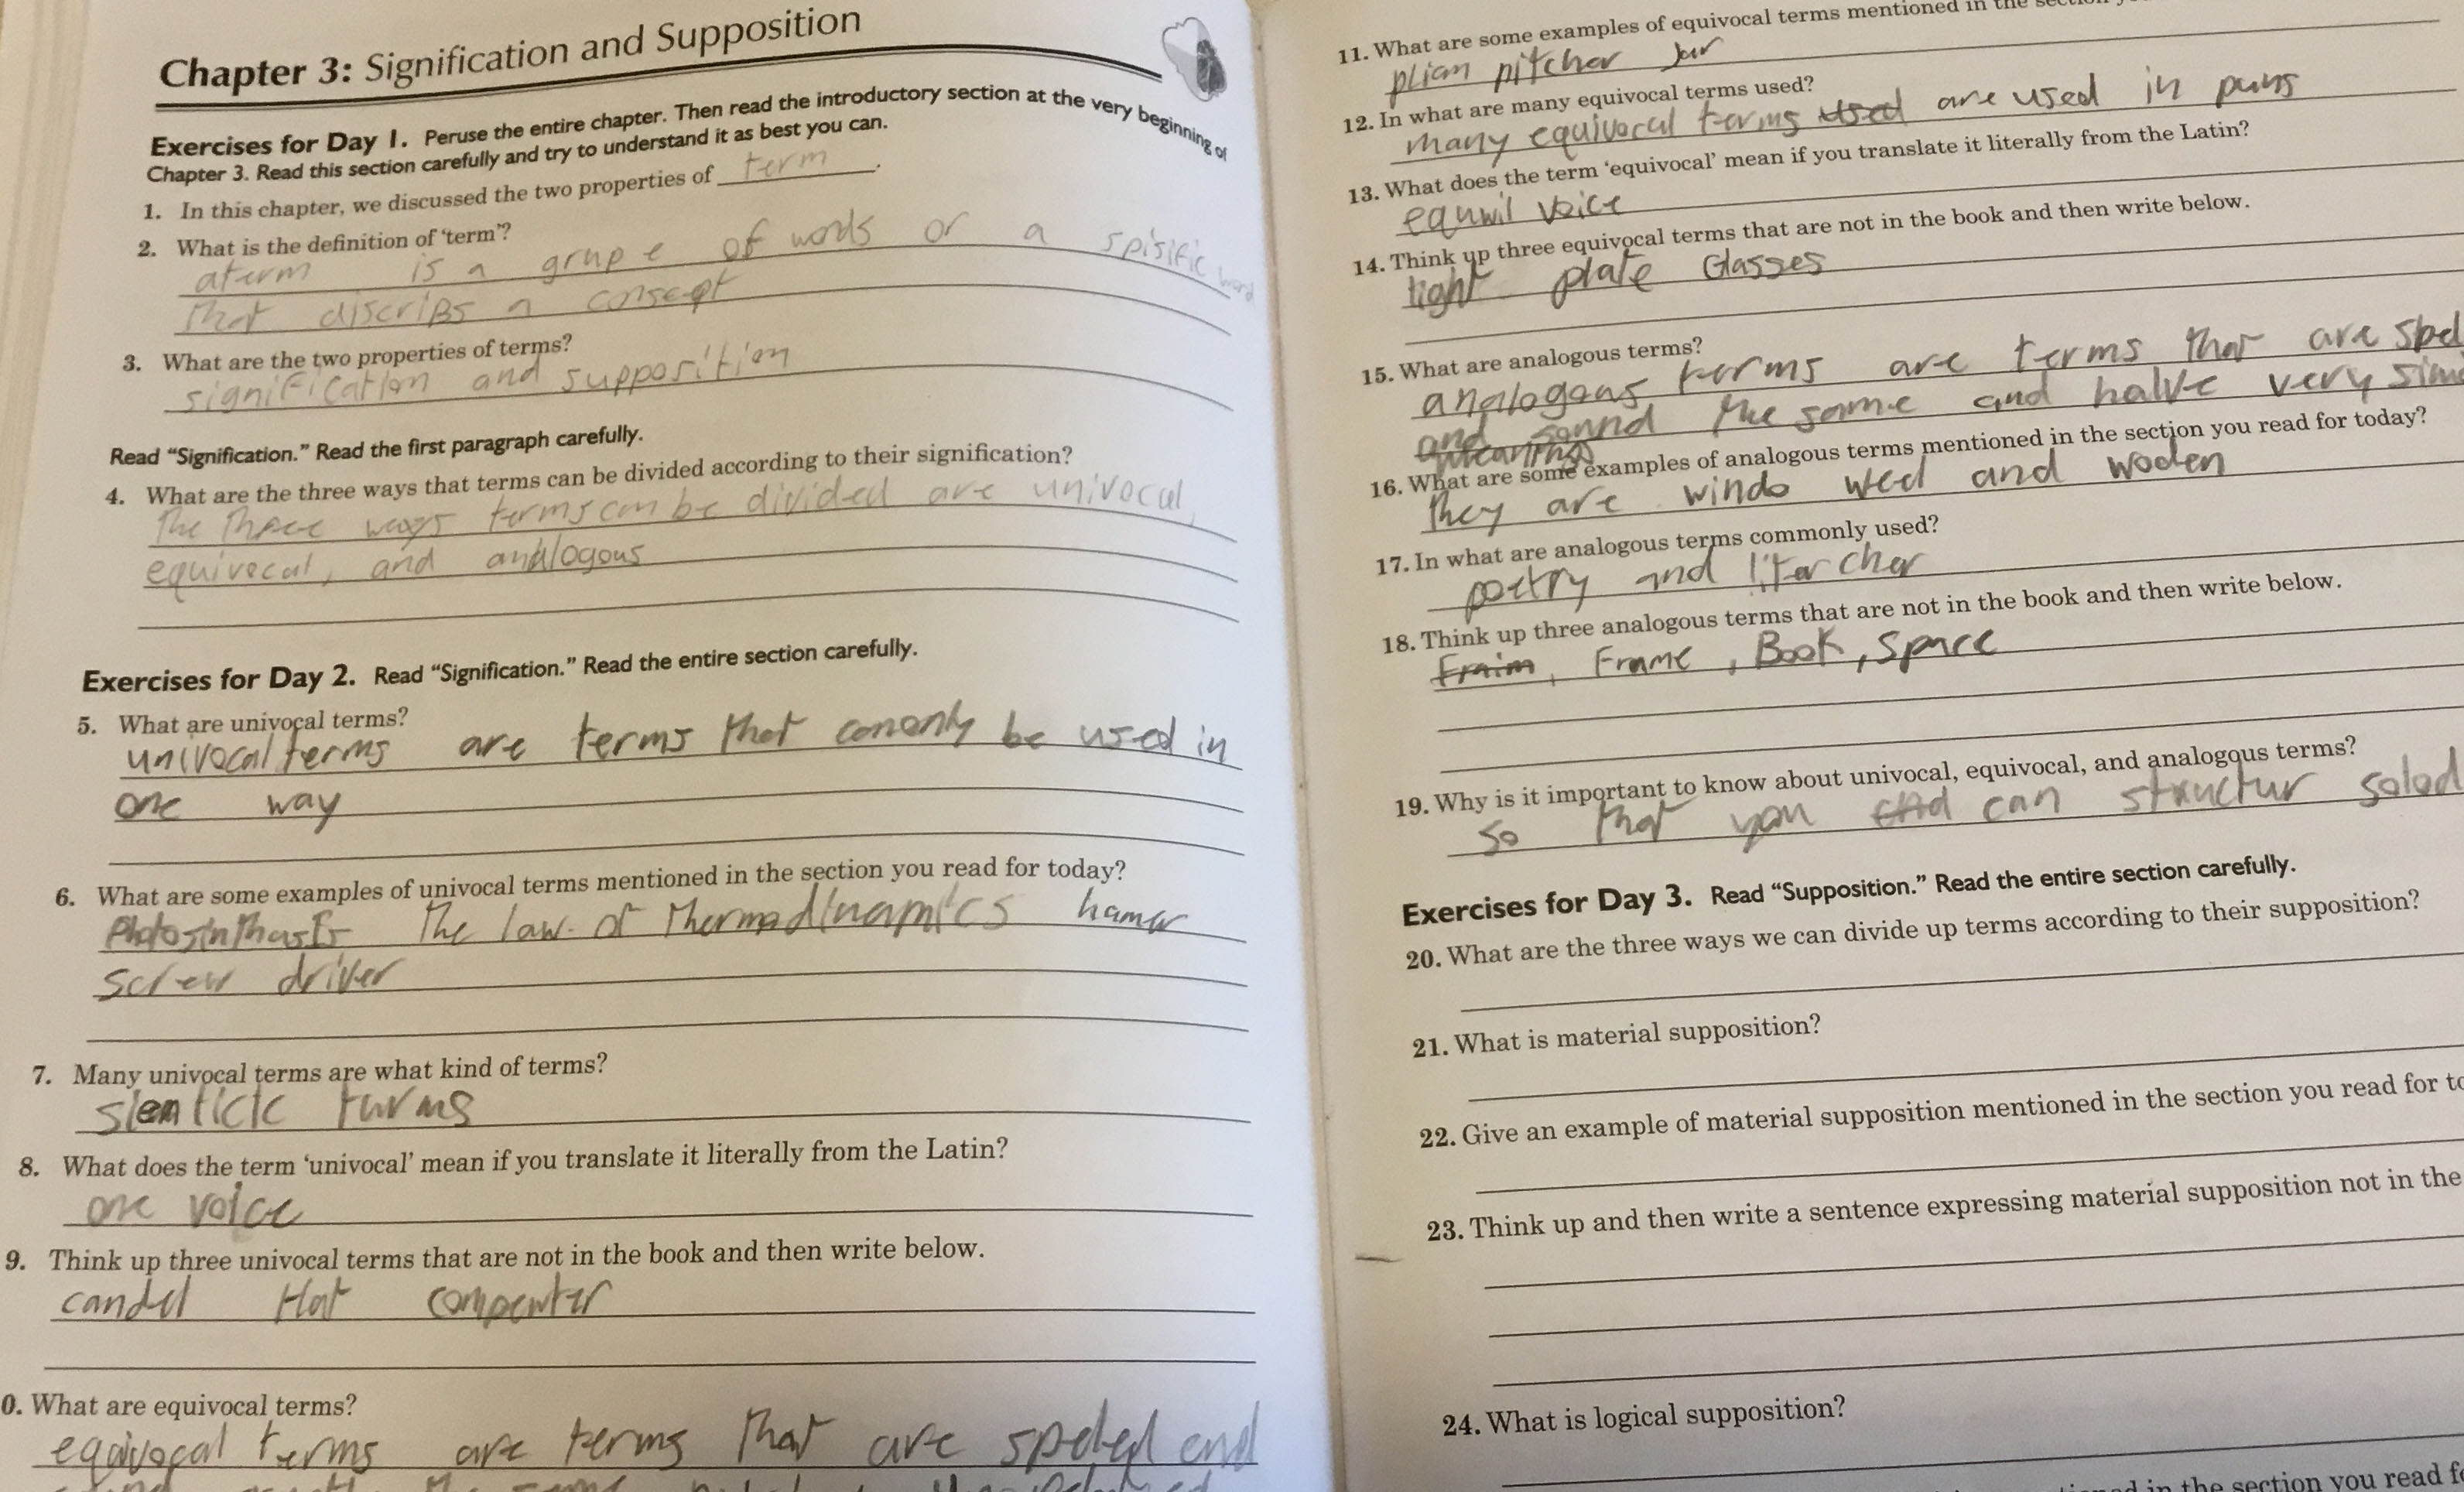 Chapter 3: Signification and Supposition
Exercises for Day 1. Peruse the entire chapter. Then read the introductory section at the very beginning of
Chapter 3. Read this section carefully and try to understand it as best you can.
1. In this chapter, we discussed the two properties of term.
2. What is the definition of 'term'?
aterm is a grupe of words or a spisific word
that discribs a consept
3. What are the two properties of terms?
signification and supposition
Read "Signification." Read the first paragraph carefully.
4. What are the three ways that terms can be divided according to their signification?
The three ways terms can be divided are univocal,
equivocal, and analogous
Exercises for Day 2. Read "Signification." Read the entire section carefully.
5. What are univocal terms?
univocal terms are terms that comonly be used in
one way
6. What are some examples of univocal terms mentioned in the section you read for today?
The law of hamer
screw driver
7. Many univocal terms are what kind of terms?
turms
8. What does the term 'univocal' mean if you translate it literally from the Latin?
one voice
9. Think up three univocal terms that are not in the book and then write below.
candel Hat compewter
0. What are equivocal terms?
equivocal terms are terms that are speled end
11. What are some examples of equivocal terms mentioned in the
plian pitcher Jar
12. In what are many equivocal terms used?
many equivocal terms used are used in puns
13. What does the term 'equivocal' mean if you translate it literally from the Latin?
voice
14. Think up three equivocal terms that are not in the book and then write below.
light plate Glasses
15. What are analogous terms?
analogous terms are terms that are spel
and sound the same and halve very sim
meanings
16. What are some examples of analogous terms mentioned in the section you read for today?
They are windo wed and woden
17. In what are analogous terms commonly used?
poetry and litercher
18. Think up three analogous terms that are not in the book and then write below.
Fraim, Frame, Book, Space
19. Why is it important to know about univocal, equivocal, and analogous terms?
so that you can structur solad
Exercises for Day 3. Read "Supposition." Read the entire section carefully.
20. What are the three ways we can divide up terms according to their supposition?
21. What is material supposition?
22. Give an example of material supposition mentioned in the section you read for to
23. Think up and then write a sentence expressing material supposition not in the
24. What is logical supposition?
in the section you read fo